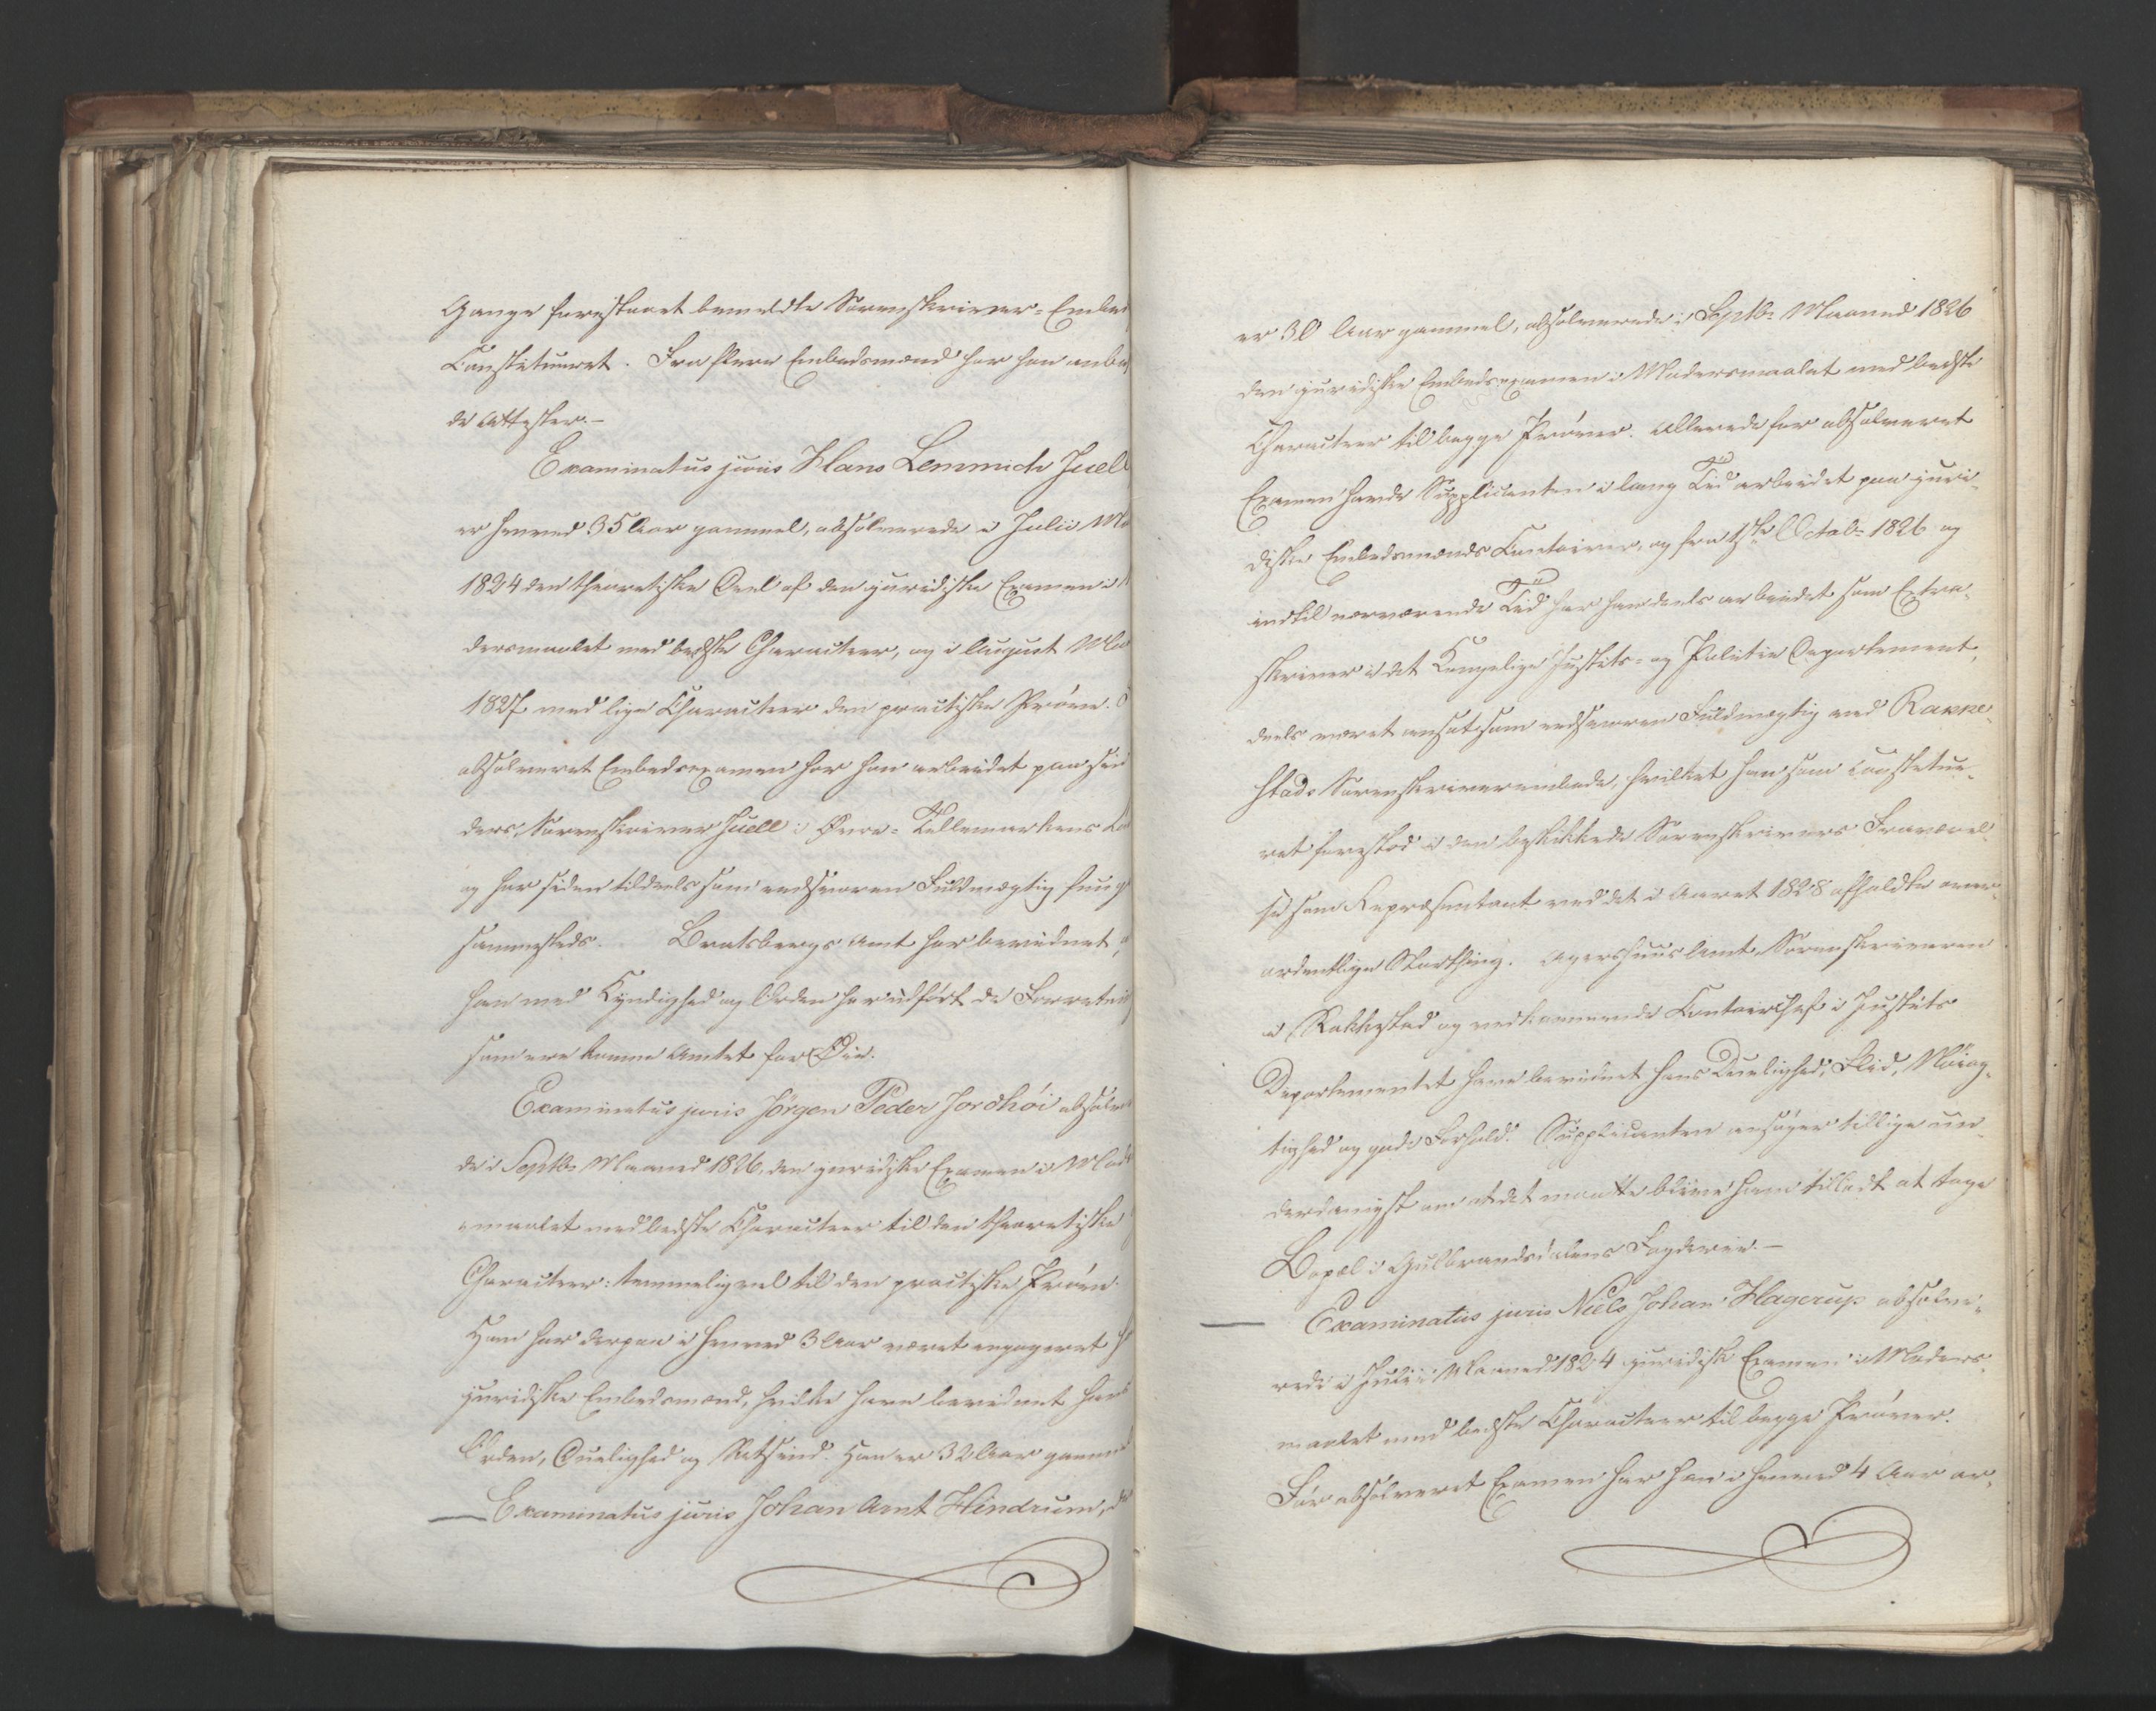 Gange forestaaet bemeldte Sorenskriver-Embed
Constitueret. Fra flere Embedsmænd har han anbe
de Attester.-
Examinatus juris Hans Lemmich Juell
er henved 35 Aar gammel, absolverede i Julii Ma
1824 den theoretiske Deel af den juridiske Examen i
dersmaalet med bedste Characteer, og i August Ma
1827 med lige Characteer den practiske Prøve.
absolveret Embedsexamen har han arbeidet paa sin
ders, Sorenskriver Juell i Øvre-Tellemarkens
og har siden tildeels som edsvoren Fuldmægtig fung
sammesteds. Bratsbergs Amt har bevidnet,
han med Kyndighed og Orden har udført de Forretni
som ere komne Amtet for Øie.
Examinatus juris Jörgen Peder Jordhöi absolve
de i Septbr Maaned 1826, den juridiske Examen i Mode
smaalet med bedste Characteer til den theoretiske
Characteer: temmelig vel til den practiske Prøve.
Han har derpaa i henved 3 Aar været engageret h
juridiske Embedsmænd, hvilke have bevidnet hans
Orden, Duelighed og Retsind. Han er 32 Aar gamme
Examinatus juris Johan Arnt Hindrum,
er 30 Aar gammel, absolverede i Septbr Maaned 1826
den juridiske Embedsexamen i Modersmaalet med bedste
Characteer til begge Prøver. Allerede før absolveret
Examen havde Supplicanten i lang Tid arbeidet paa juri-
diske Embedsmænds Contoirer, og fra 1ste Octobr 1826 og
indtil nærværende Tid har han deels arbeidet som Extra-
skriver i det Kongelige Justits- og Politie Departement,
deels været ansat som edsvoren Fuldmægtig ved Rakke-
stads Sorenskriverembede, hvilket han som Constitue-
ret forestod i den beskikkede Sorenskrivers Fraværel-
se som Repræsentant ved det i Aaret 1828 afholdte over-
ordentlige Storthing. Agershuus Amt, Sorenskriveren
i Rakkestad og vedkommende Contoirchef i Justits
Departementet have bevidnet hans Duelighed, Flid, Nöiag-
tighed og gode Forhold. Supplicanten ansøger tillige un-
derdanigst om at det maatte blive ham tilladt at tage
Bopæl i Gulbrandsdalens Fogderie.-
Examinatus juris Niels Johan Hagerup absolve-
rede i Julii Maaned 1824 juridisk Examen i Moders-
maalet med bedste Characteer til begge Prøver.
Før absolveret Examen har han i henved 4 Aar ar-